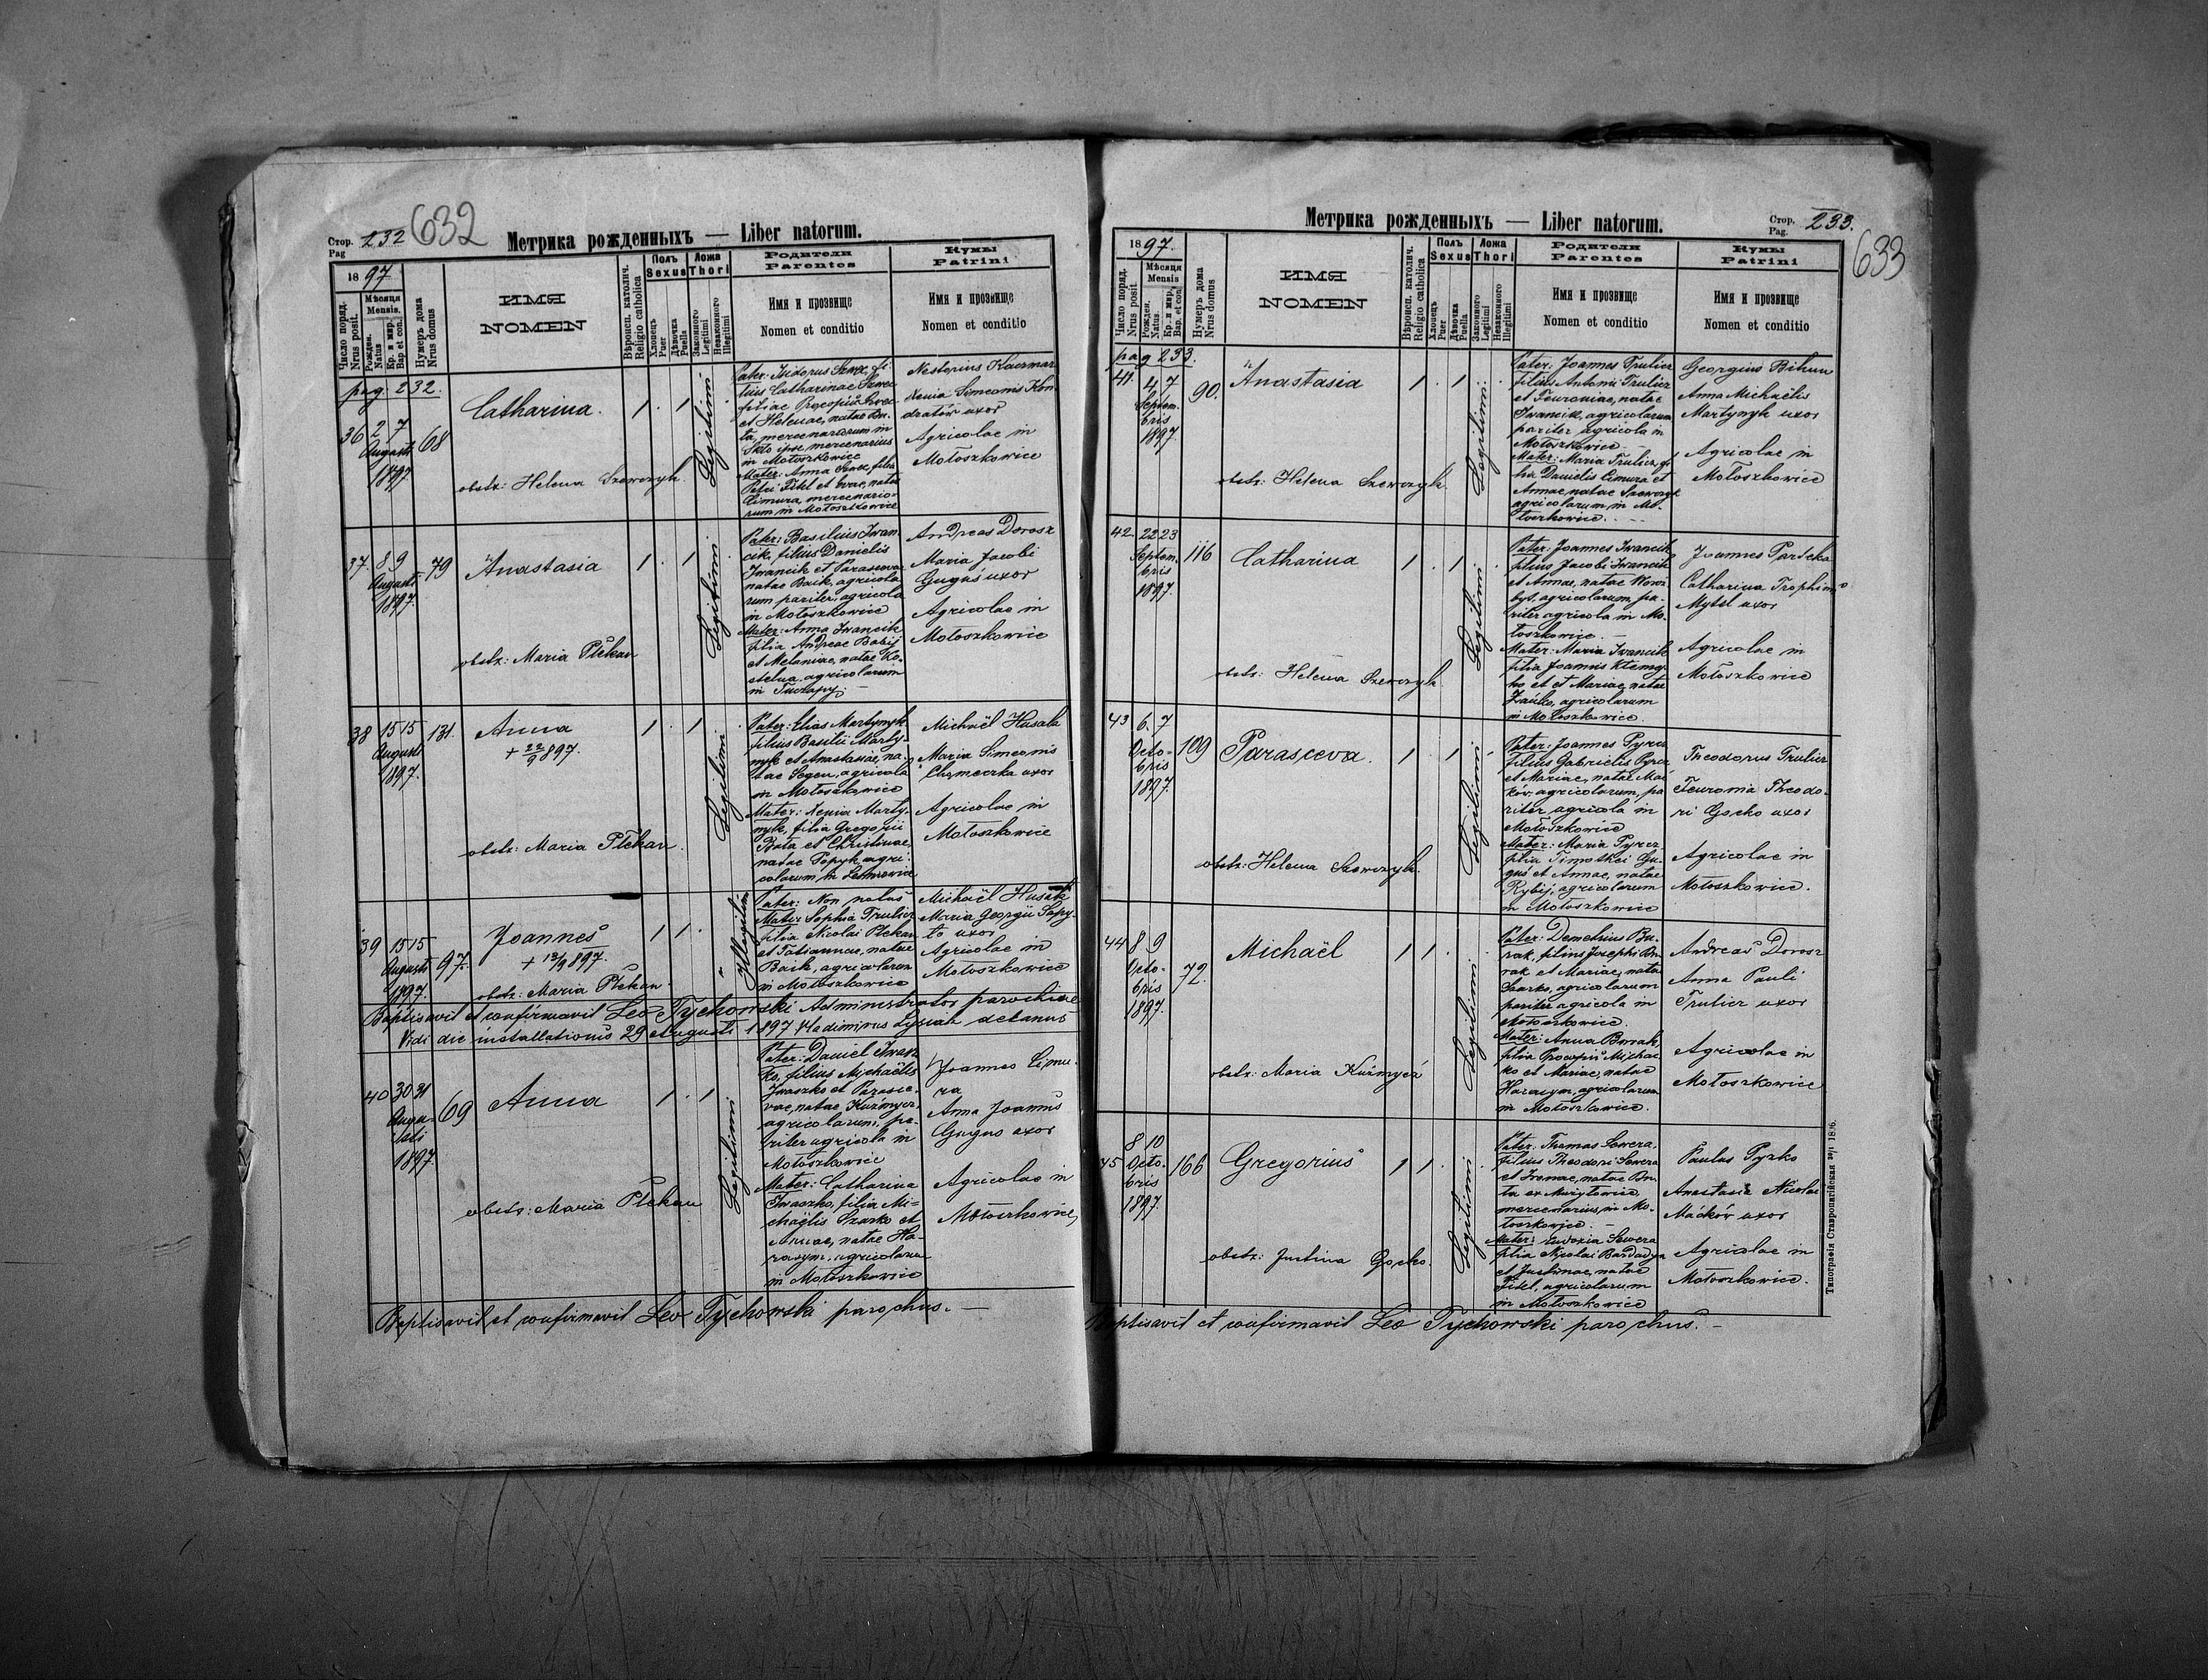 Стор. 232 632
Pag
Метрика рожденныхъ — Liber natorum.
1897.
Число поряд.
Nrus posit.
Мѣсяця
Mensis.
Рожден.
Natus
Кр. и мир.
Bap et con.
Нумеръ дома
Nrus domus
ИМЯ
NOMEN
Вѣроисп. католич.
Religio catholica
Полъ
Sexus
Хлопецъ
Puer
Дѣвочка
Puella
Ложа
Thori
Законного
Legitimi
Незаконного
Illegitimi
Родители
Parentes
Имя и прозвище
Nomen et conditio
Кумы
Patrini
Имя и прозвище
Nomen et conditio
pag. 232.
36 2 7 68
Augusti
1897.
Catharina.
obstr: Helena Szewczyk.
1 . 1 Legitimi
Pater: Isidorus Szwec, fi-
lius Catharinae Szwec
filiae Procopii Szwec
et Helenae, natae Bu-
ta, mercenariorum in
Skło ipse mercenarius
in Mołoszkowice
Mater: Anna Szwec, filia
Petri Fitel et Evae, natae
Cimura, mercenario-
rum in Mołoszkowice
Nestorius Kaczmar
Xenia Simeonis Kon
dratów uxor
Agricolae in
Mołoszkowice
37. 8 9 79
Augusti
1897.
Anastasia
obstr: Maria Plekan
1 . 1 Legitimi
Pater: Basilius Iwan-
cik, filius Danielis
Iwancik et Parasceva
natae Baik, agricola
rum pariter, agricola
in Mołoszkowice
Mater: Anna Iwancik
filia Andreae Babij
et Melaniae, natae Ko-
stelna, agricolarum
in Tuczapy
Andreas Dorosz
Maria Jacobi
Guguś uxor
Agricolae in
Mołoszkowice
38 15 15 131.
Augusti
1897.
Anna
+ 22/9 897.
obstr: Maria Plekan.
1 . 1 Legitimi
Pater: Elias Martynyk
filius Basilii Marty-
nyk et Anastasiae, na-
tae Segen, agricola
in Mołoszkowice
Mater: Xenia Marty-
nyk, filia Gregorii
Bata et Christinae,
natae Popyk, agri-
colarum in
Michaël Husak
Maria Simeonis
Chymeczka uxor
Agricolae in
Mołoszkowice
39 15 15 97.
Augusti
1897.
Joannes
+ 12/9 897.
obstr: Maria Plekan
1 1 . Illegitimi
Pater: Non notus
Mater: Sophia Trulicz
filia Nicolai Plekan
et Tatiannae, natae
Baik, agricolarum
in Mołoszkowice
Michaël Husak
Maria Georgii Sapy-
to uxor
Agricolae in
Mołoszkowice
Baptisavit et confirmavit Leo Tychowski Administrator parochiae
Vidi die installationis 29 Augusti 1897 Wladimirus Łysiak decanus
40 30 31 69
Augu-
sti
1897.
Anna
obstr: Maria Plekan
1 . 1 Legitimi
Pater: Daniel Iwasz
ko, filius Michaëlis
Iwaszko et Parasce-
vae, natae Kuźmycz,
agricolarum, pa-
riter agricola in
Mołoszkowice
Mater: Catharina
Iwaszko, filia Mi-
chaëlis Szarko et
Annae, natae Ha-
rasym, agricolarum
in Mołoszkowice
Joannes Cimu-
ra
Anna Joannis
Gugus uxor
Agricolae in
Mołoszkowice
Baptisavit et confirmavit Leo Tychowski parochus. —
Метрика рожденныхъ — Liber natorum.
Стор. 233.
Pag.
633
1897.
Число поряд.
Nrus posit.
Мѣсяця
Mensis
Рожден.
Natus.
Кр. и мир.
Bap. et con
Нумеръ дома
Nrus domus
ИМЯ
NOMEN
Вѣроисп. католич.
Religio catholica
Полъ
Sexus
Хлопецъ
Puer
Дѣвочка
Puella
Ложа
Thori
Законного
Legitimi
Незаконного
Illegitimi
Родители
Parentes
Имя и прозвище
Nomen et conditio
Кумы
Patrini
Имя и прозвище
Nomen et conditio
pag 233.
41. 4 7 90.
Septem-
bris
1897.
Anastasia
obstr: Helena Szewczyk.
1 . 1 Legitimi
Pater: Joannes Trulicz
filius Antonii Trulicz
et Feuroniae, natae
Iwancik, agricolarum
pariter agricola in
Mołoszkowice —
Mater: Maria Trulicz, fi-
lia Danielis Cimura et
Annae, natae Szewczyk
agricolarum in Mo-
łoszkowice.
Georgius Bihun
Anna Michaëlis
Martynyk uxor
Agricolae in
Mołoszkowice
42. 22 23 116
Septem-
bris
1897.
Catharina
obstr: Helena Szewczyk
1 . 1 Legitimi
Pater: Joannes Iwancik
filius Jacobi Iwancik
et Annae, natae
agricolarum, pa-
riter agricola in Mo-
łoszkowice. —
Mater: Maria Iwancik
filia Joannis Klemy-
ko et et Mariae, natae
Zańko, agricolarum
in Mołoszkowice.
Joannes Parteka
Catharina Trophimi
Mytel uxor
Agricolae in
Mołoszkowice
43 6. 7 109
Octo-
bris
1897.
Parasceva.
obstr: Helena Szewczyk.
1 . 1 Legitimi
Pater: Joannes Pyrcz
filius Gabrielis Pyrcz
et Mariae, natae Mać
ków, agricolarum, pa
riter agricola in
Mołoszkowice
Mater: Maria Pyrcz
filia Timothei Gu-
guś et Annae, natae
Rybij, agricolarum
in Mołoszkowice
Theodorus Trulicz
Feuronia Theodo-
ri Gocko uxor
Agricolae in
Mołoszkowice.
44 8 9 72.
Octo-
bris
1897.
Michaël
obstr: Maria Kuźmycz
1 1 . Legitimi
Pater: Demetrius Bu-
rak, filius Josephi Bu
rak et Mariae, natae
Szarko, agricolarum
pariter agricola in
Mołoszkowice.
Mater: Anna Burak,
filia Procopii Michal
ko et Mariae, natae
Harasym, agricolarum
in Mołoszkowice.
Andreas Dorosz
Anna Pauli
Trulicz uxor
Agricolae in
Mołoszkowice
45 8 10 166
Octo-
bris
1897.
Gregorius
obstr: Justina Gocko.
1 1 . Legitimi
Pater: Thomas Sewera,
filius Theodori Sewera
et Irenae, natae Bu-
ta ex Mużyłowice
mercenarius in Mo-
łoszkowice. —
Mater: Eudoxia Sewera
filia Nicolai Bardadyn
et Justinae, natae
Fitel, agricolarum
in Mołoszkowice
Paulus Pyzko
Anastasia Nicolai
Maćków uxor
Agricolae in
Mołoszkowice.
Baptisavit et confirmavit Leo Tychowski parochus. —
Типографія Ставропигійская 1896.